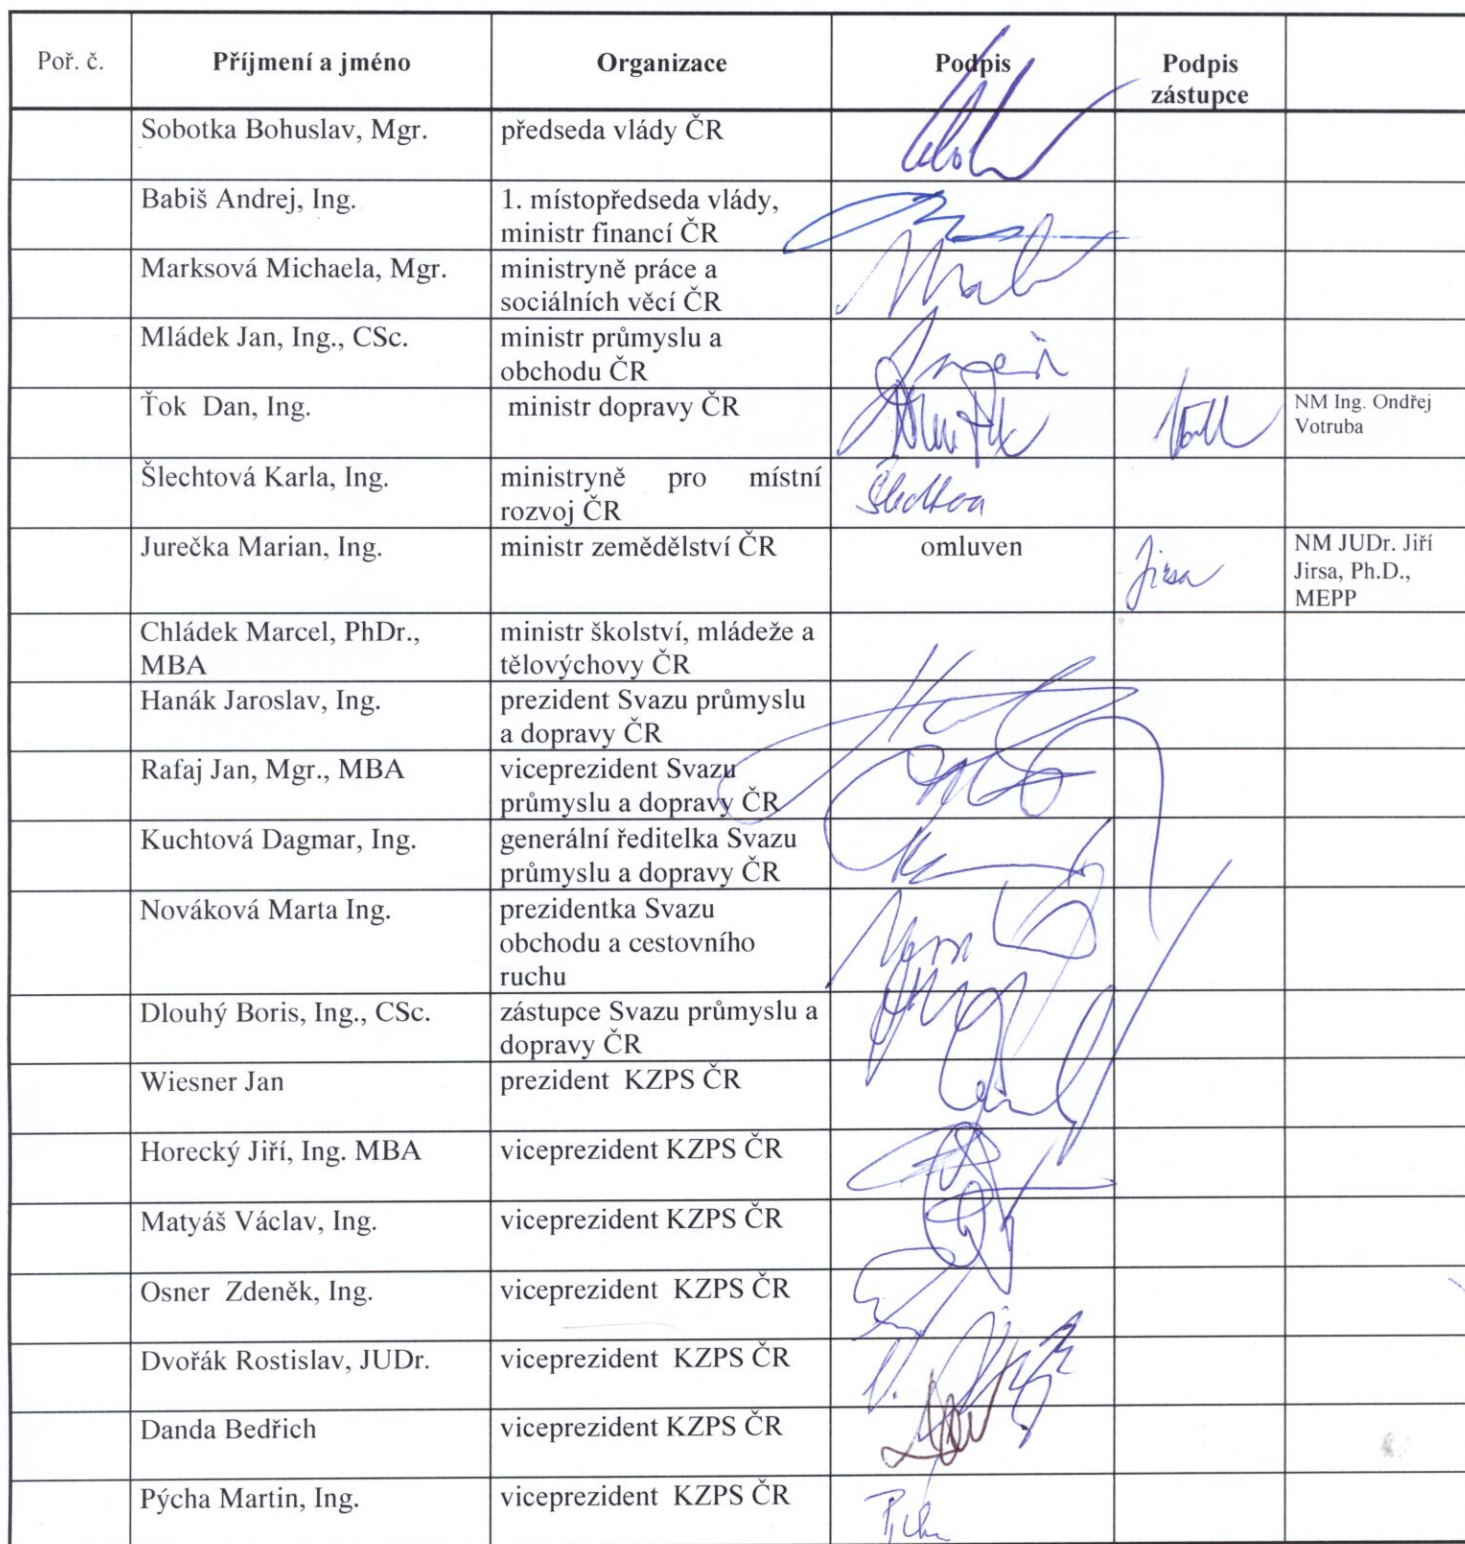 Poř. č. Příjmení a jméno Organizace Podpis Podpis
zástupce
Sobotka Bohuslav, Mgr. předseda vlády ČR
Babiš Andrej, Ing. 1. místopředseda vlády,
ministr financí ČR
Marksová Michaela, Mgr. ministryně práce a
sociálních věcí ČR
Mládek Jan, Ing., CSc. ministr průmyslu a
obchodu ČR
Ťok Dan, Ing. ministr dopravy ČR NM Ing. Ondřej
Votruba
Šlechtová Karla, Ing. ministryně pro místní
rozvoj ČR
Jurečka Marian, Ing. ministr zemědělství ČR omluven Jirsa NM JUDr. Jiří
Jirsa, Ph.D.,
MEPP
Chládek Marcel, PhDr., ministr školství, mládeže a
MBA tělovýchovy ČR
Hanák Jaroslav, Ing. prezident Svazu průmyslu
a dopravy ČR
Rafaj Jan, Mgr., MBA viceprezident Svazu
průmyslu a dopravy ČR
Kuchtová Dagmar, Ing. generální ředitelka Svazu
průmyslu a dopravy ČR
Nováková Marta Ing. prezidentka Svazu
obchodu a cestovního
ruchu
Dlouhý Boris, Ing., CSc. zástupce Svazu průmyslu a
dopravy ČR
Wiesner Jan prezident KZPS ČR
Horecký Jiří, Ing. MBA viceprezident KZPS ČR
Matyáš Václav, Ing. viceprezident KZPS ČR
Osner Zdeněk, Ing. viceprezident KZPS ČR
Dvořák Rostislav, JUDr. viceprezident KZPS ČR
Danda Bedřich viceprezident KZPS ČR
Pýcha Martin, Ing. viceprezident KZPS ČR